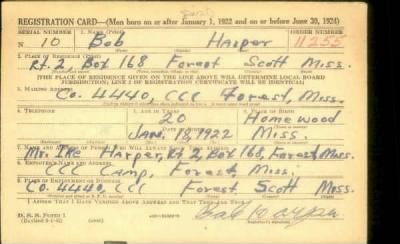 REGISTRATION CARD—(Men born on or after January 1, 1922 and on or before June 30, 1924)
SERIAL NUMBER 1. NAME (Print) ORDER NUMBER
N 10 Bob Harper 11255
2. PLACE OF RESIDENCE (Print)
Rt. 2, Box 168 Forest Scott Miss.
[THE PLACE OF RESIDENCE GIVEN ON THE LINE ABOVE WILL DETERMINE LOCAL BOARD
JURISDICTION; LINE 2 OF REGISTRATION CERTIFICATE WILL BE IDENTICAL]
3. MAILING ADDRESS
Co. 4440, CCC Forest, Miss.
4. TELEPHONE 5. AGE IN YEARS 6. PLACE OF BIRTH
20 Homewood
DATE OF BIRTH
Jan. 18, 1922 Miss.
7. NAME AND ADDRESS OF PERSON WHO WILL ALWAYS KNOW YOUR ADDRESS
Mr. Ike Harper, Rt 2, Box 168, Forest, Miss.
8. EMPLOYER'S NAME AND ADDRESS
CCC Camp, Forest, Miss.
9. PLACE OF EMPLOYMENT OR BUSINESS
Co. 4440, CCC Forest Scott Miss.
I AFFIRM THAT I HAVE VERIFIED ABOVE ANSWERS AND THAT THEY ARE TRUE.
D. S. S. FORM 1
Bob Harper